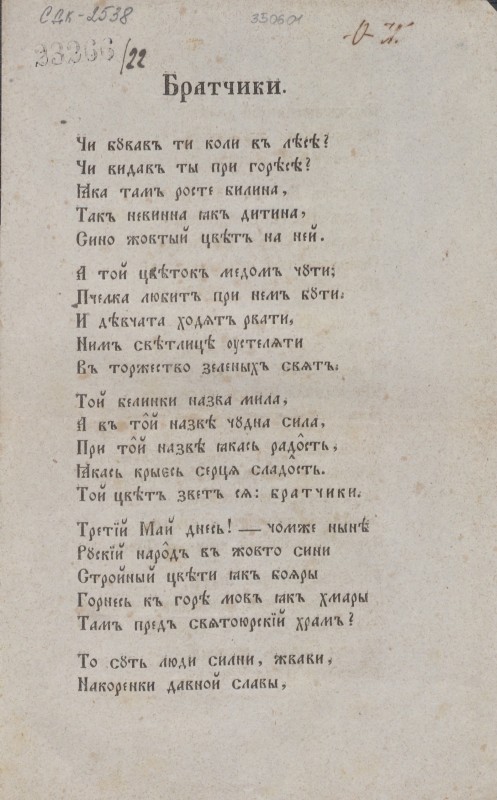 СДК-2538
350601
33266/22
Братчики.
Чи бꙋвавъ ти коли въ лѣсѣ?
Чи видавъ ты при горѣсѣ?
Ꙗка тамъ росте билина,
Такъ невинна ꙗкъ дитина,
Сино жовтый цвѣтъ на ней.
А той цвѣтокъ медомъ чꙋти;
Пчелка любитъ при немъ бꙋти.
И дѣвчата ходятъ рвати,
Нимъ свѣтлицѣ оустеляти
Въ торжество зеленыхъ святъ.
Той белинки назва мила,
А в то̂й назвѣ чꙋдна сила,
При то̂й назвѣ ꙗкась радо̂сть,
Ꙗкась крыесь серця сладо̂сть.
Той цвѣтъ зветъ ся: братчики.
Третїй Май днесь! — чомже нынѣ
Рꙋскїй наро̂дъ въ жовто сини
Стройный цвѣти ꙗкъ бояры
Горнесь къ горѣ мовъ ꙗкъ хмары
Тамъ предъ святоюрскїй храмъ?
То сꙋть люди силни, жвави,
Накоренки давной славы,